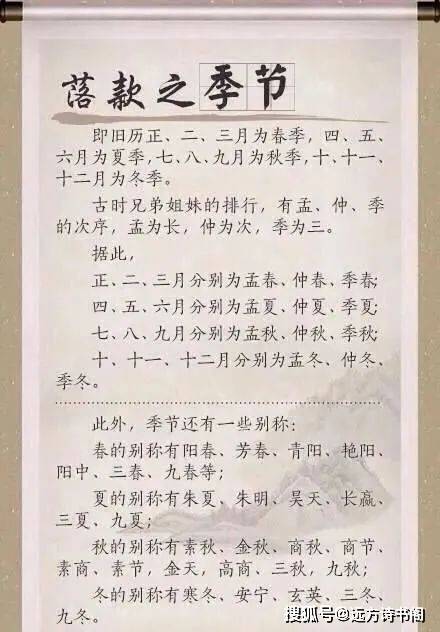 落款之季节
即旧历正、二、三月为春季,四、五、
六月为夏季,七、八、九月为秋季,十、十一、
十二月为冬季。
古时兄弟姐妹的排行,有孟、仲、季
的次序,孟为长,仲为次,季为三。
据此,
正、二、三月分别为孟春、仲春、季春;
四、五、六月分别为孟夏、仲夏、季夏;
七、八、九月分别为孟秋、仲秋、季秋;
十、十一、十二月分别为孟冬、仲冬、
季冬。
此外,季节还有一些别称:
春的别称有阳春、芳春、青阳、艳阳、
阳中、三春、九春等;
夏的别称有朱夏、朱明、昊天、长赢、
三夏、九夏;
秋的别称有素秋、金秋、商秋、商节、
素商、素节,金天,高商、三秋,九秋;
冬的别称有寒冬、安宁、玄英、三冬、
九冬。
搜狐号@远方诗书阁